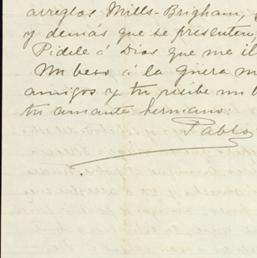 arreglos Mills-Brigham,
y demás que se presenten,
Pídele á Dios que me il
Un beso á la Güera
amigos y tu recibe un
tu amante hermano:
Pablo